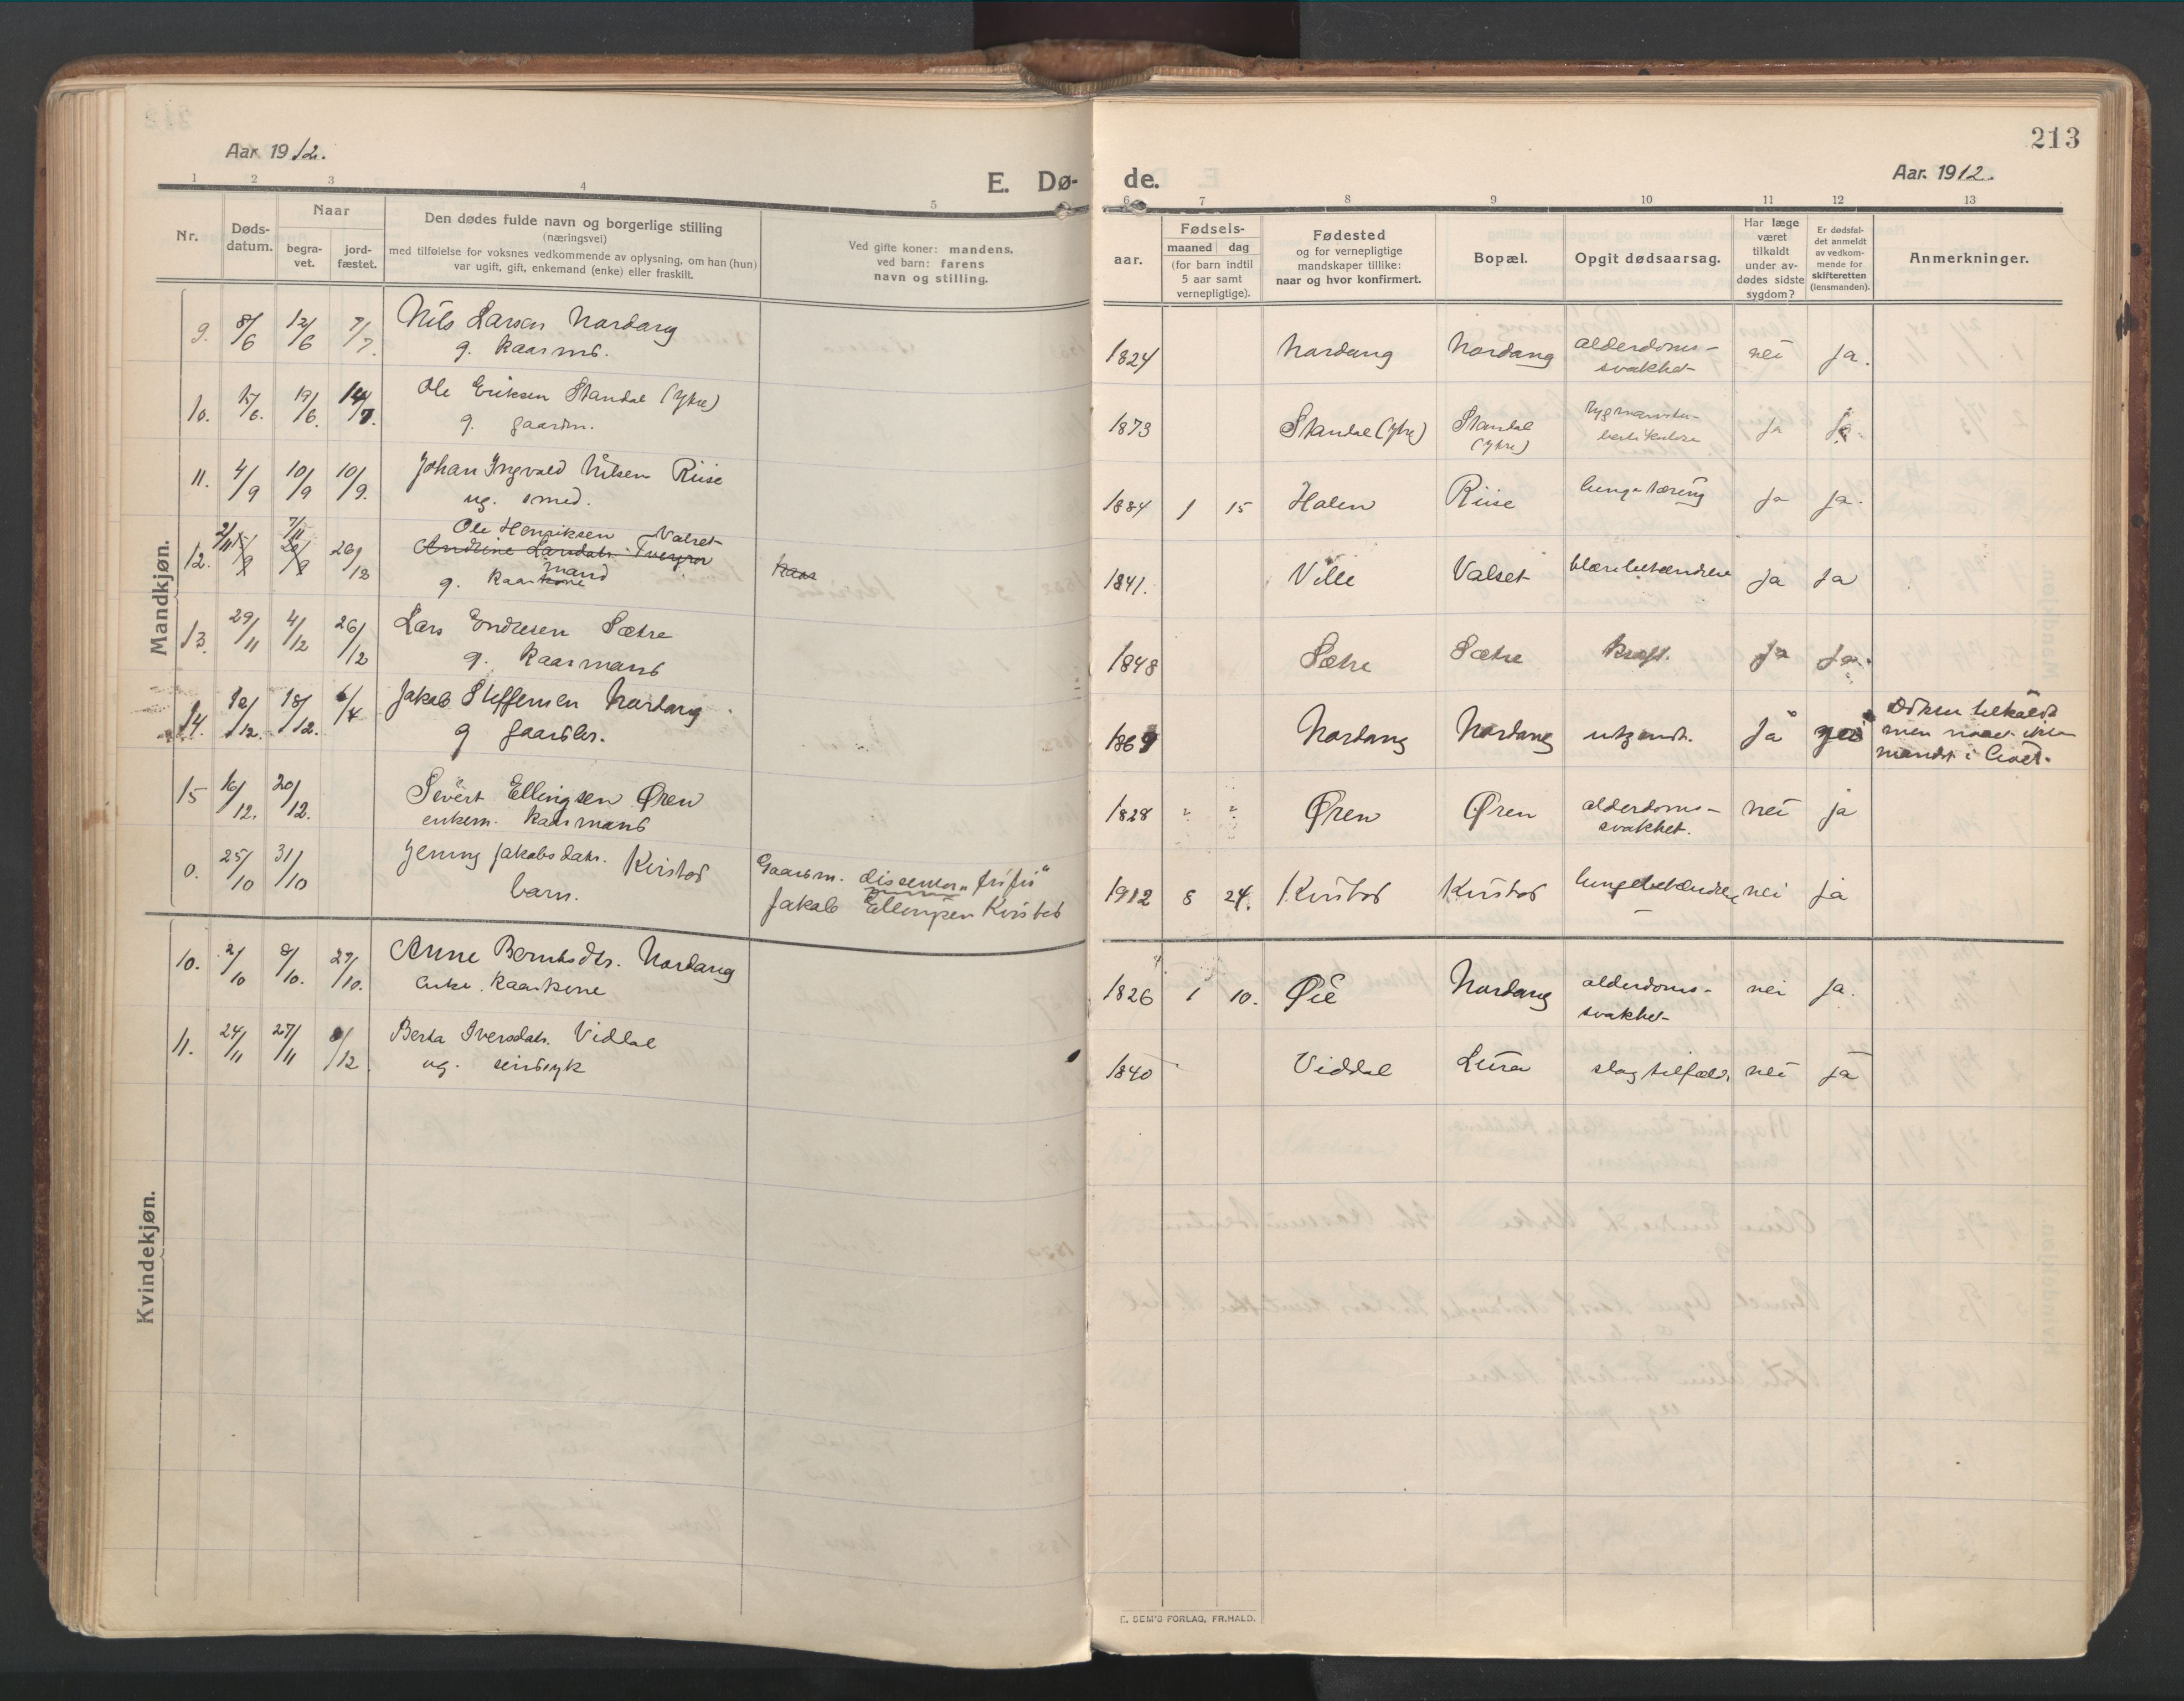 213
Aar 1912.
Aar. 1912.
E. Dø- de.
1 2 3 4 5 6 7 8 9 10 11 12 13
Nr.
Døds-
datum.
Naar
begra-
vet.
jord-
fæstet.
Den dødes fulde navn og borgerlige stilling
(næringsvei)
med tilføielse for voksnes vedkommende av oplysning, om han (hun)
var ugift, gift, enkemand (enke) eller fraskilt.
Ved gifte koner: mandens,
ved barn: farens
navn og stilling.
Fødsels-
aar.
maaned dag
(for barn indtil
5 aar samt
vernepligtige).
Fødested
og for vernepligtige
mandskaper tillike:
naar og hvor konfirmert.
Bopæl.
Opgit dødsaarsag.
Har læge
været
tilkaldt
under av-
dødes sidste
sygdom?
Er dødsfal-
det anmeldt
av vedkom-
mende for
skifteretten
(lensmanden).
Anmerkninger.
Mandkjøn.
9. 8/6 12/6 7/7. Nils Larsen Nordang 1824 Nordang Nordang alderdoms- nei ja.
g. kaarmd. svakhet
10. 15/6. 19/6. 14/7. Ole Eriksen Standal (ytre) 1873 Standal (ytre) Standal ja ja.
g. gaardm. (ytre)
11. 4/9 10/9 10/9. Johan Ingvald Nilsen Riise 1884 1 15 Halen Riise lungetæring ja ja.
ug. smed.
12. 2/11 7/11 26/12 Ole Henriksen Valset 1841. Ville Valset blærebetændelse ja ja
Andrine Larsdatr. Tverrror
mand
g. kaarkone kaar
13. 29/11 4/12 26/12 Lars Endresen Sætre 1848 Sætre Sætre kræft. ja ja.
g. kaarmand
14. 12/12. 18/12. 6/4 Jakob Steffensen Nordang 1869 Nordang Nordang ukjendt. ja Dokter tilkaldt
g gaardbr. men naaet ikke
manden i livet.
15 16/12. 20/12. Severt Ellingsen Øren 1828 " " Øren Øren alderdoms- nei ja
enkem. kaarmand svakhet.
0. 25/10 31/10 Jenny Jakobsdatr. Kvistad Gaardm. dissenter „frifri" 1912 8 24. Kvistad Kvistad lungebetændelse nei ja
barn. Jakob Ellingsen Kvistad
Kvindekjøn.
10. 2/10 8/10. 27/10. Anne Berntsdtr. Nordang 1826 1 10. Øie Nordang alderdoms- nei ja.
enke. kaarkone svakhet
11. 24/11 27/11 8/12. Berta Iversdatr. Viddal 1840 Viddal slagtilfæld. nei ja
ug. sindsyk
E. SEM'S FORLAG, FR.HALD.